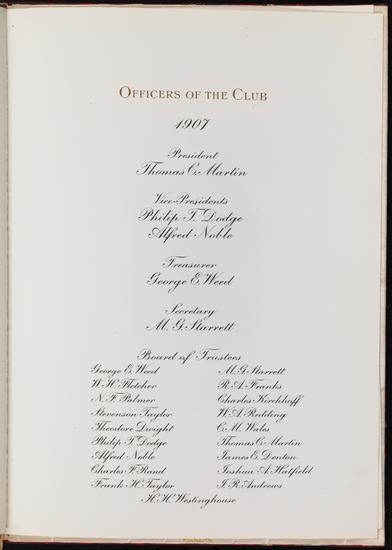 OFFICERS OF THE CLUB
1907
President
Thomas C. Martin
Vice-Presidents
Philip T. Dodge
Alfred Noble
Treasurer
George E. Weed
Secretary
M. G. Starrett
Board of Trustees
George E. Weed
W. H. Fletcher
N. F. Palmer
Stevenson Taylor
Theodore Dwight
Philip T. Dodge
Alfred Noble
Charles F. Rand
Frank H. Taylor
M. G. Starrett
R. A. Franks
Charles Kirchhoff
W. A. Redding
C. M. Wales
Thomas C. Martin
James E. Denton
Joshua A. Hatfield
J. R. Andrews
H. H. Westinghouse